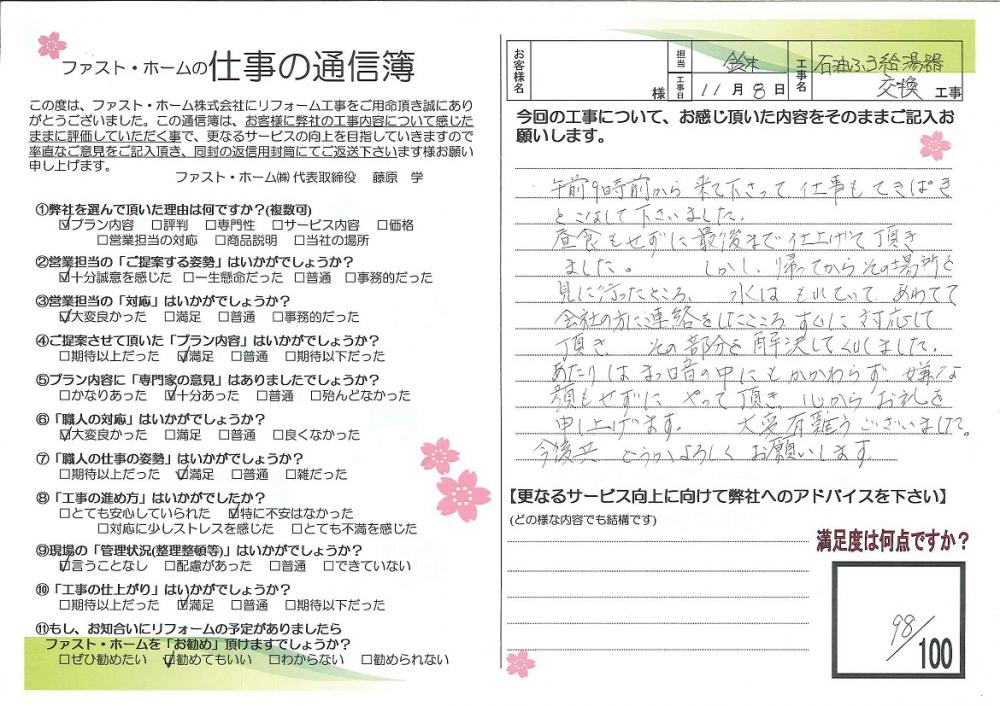 ファスト・ホームの仕事の通信簿
この度は、ファスト・ホーム株式会社にリフォーム工事をご用命頂き誠にあり
がとうございました。この通信簿は、お客様に弊社の工事内容について感じた
ままに評価していただく事で、更なるサービスの向上を目指していきますので
率直なご意見をご記入頂き、同封の返信用封筒にてご返送下さいます様お願い
申し上げます。
ファスト・ホーム㈱ 代表取締役 藤原 学
①弊社を選んで頂いた理由は何ですか?(複数可)
☑プラン内容 □評判 □専門性 □サービス内容 □価格
□営業担当の対応 □商品説明 □当社の場所
②営業担当の「ご提案する姿勢」はいかがでしょうか?
☑十分誠意を感じた □一生懸命だった □普通 □事務的だった
③営業担当の「対応」はいかがでしょうか?
☑大変良かった □満足 □普通 □事務的だった
④ご提案させて頂いた「プラン内容」はいかがでしょうか?
□期待以上だった ☑満足 □普通 □期待以下だった
⑤プラン内容に「専門家の意見」はありましたでしょうか?
□かなりあった ☑十分あった □普通 □殆んどなかった
⑥「職人の対応」はいかがでしょうか?
☑大変良かった □満足 □普通 □良くなかった
⑦「職人の仕事の姿勢」はいかがでしょうか?
□期待以上だった ☑満足 □普通 □雑だった
⑧「工事の進め方」はいかがでしたか?
□とても安心していられた ☑特に不安はなかった
□対応に少しストレスを感じた □とても不満を感じた
⑨現場の「管理状況(整理整頓等)」はいかがでしょうか?
☑言うことなし □配慮があった □普通 □できていない
⑩「工事の仕上がり」はいかがでしょうか?
□期待以上だった ☑満足 □普通 □期待以下だった
⑪もし、お知合いにリフォームの予定がありましたら
ファスト・ホームを「お勧め」頂けますでしょうか?
□ぜひ勧めたい ☑勧めてもいい □わからない □勧められない
お客様名 様 担当 鈴木 工事日 11月8日 工事名 石油ふろ給湯器
交換 工事
今回の工事について、お感じ頂いた内容をそのままご記入お
願いします。
午前9時前から来て下さって、仕事もてきぱき
とこなして下さいました。
昼食もせずに最後まで仕上げて頂き
ました。 しかし、帰ってからその場所を
見に行ったところ、 水はもれていて、あわてて
会社の方に連絡をしたところ、すぐに対応して
頂き、 その部分を解決してくれました。
あたりはまっ暗の中にもかかわらず、嫌な
顔もせずに やって頂き 心からお礼を
申し上げます。 大変有難うございまして。
今後共 どうかよろしく お願いします
【更なるサービス向上に向けて弊社へのアドバイスを下さい】
(どの様な内容でも結構です)
満足度は何点ですか?
98/100